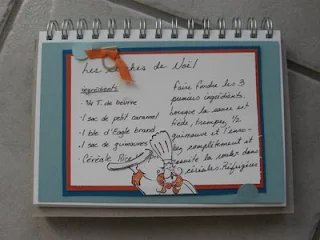 Les bûches de Noël
Ingrédients
- 3/4 T. de beurre
- 1 sac de petit caramel
- 1 bte d'Eagle brand
- 1 sac de guimauves
- Céréale Rice
Faire fondre les 3
premiers ingrédients,
lorsque la sauce est
tiède, trempez, 1/2
guimauve et l'enro-
bez complètement et
ensuite la rouler dans
céréales. Réfrigérer